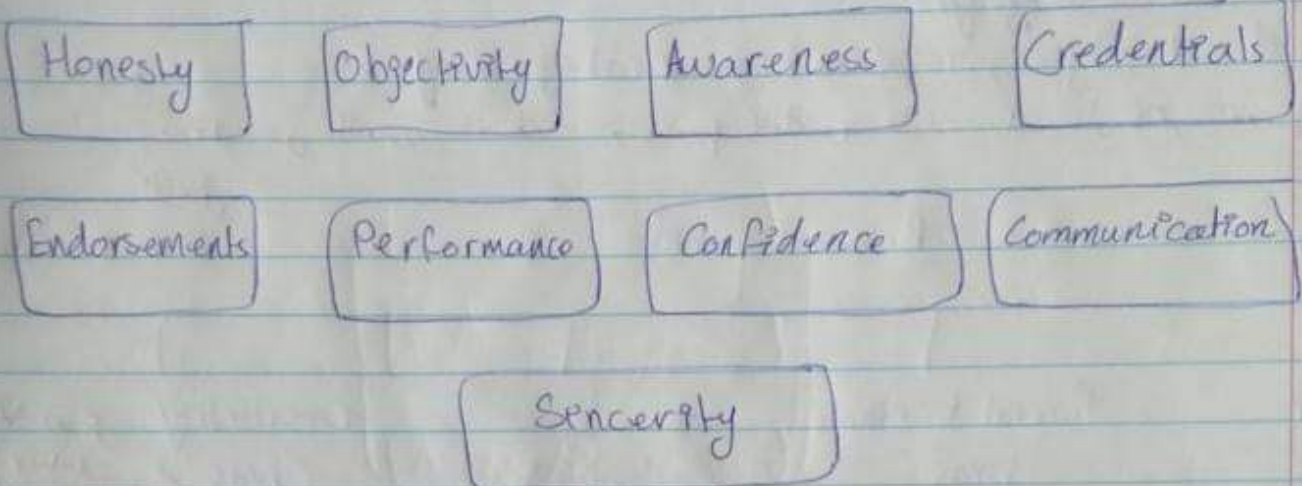 Honesty Objectivity Awareness Credentials
Endorsements Performance Confidence Communication
Sencerity